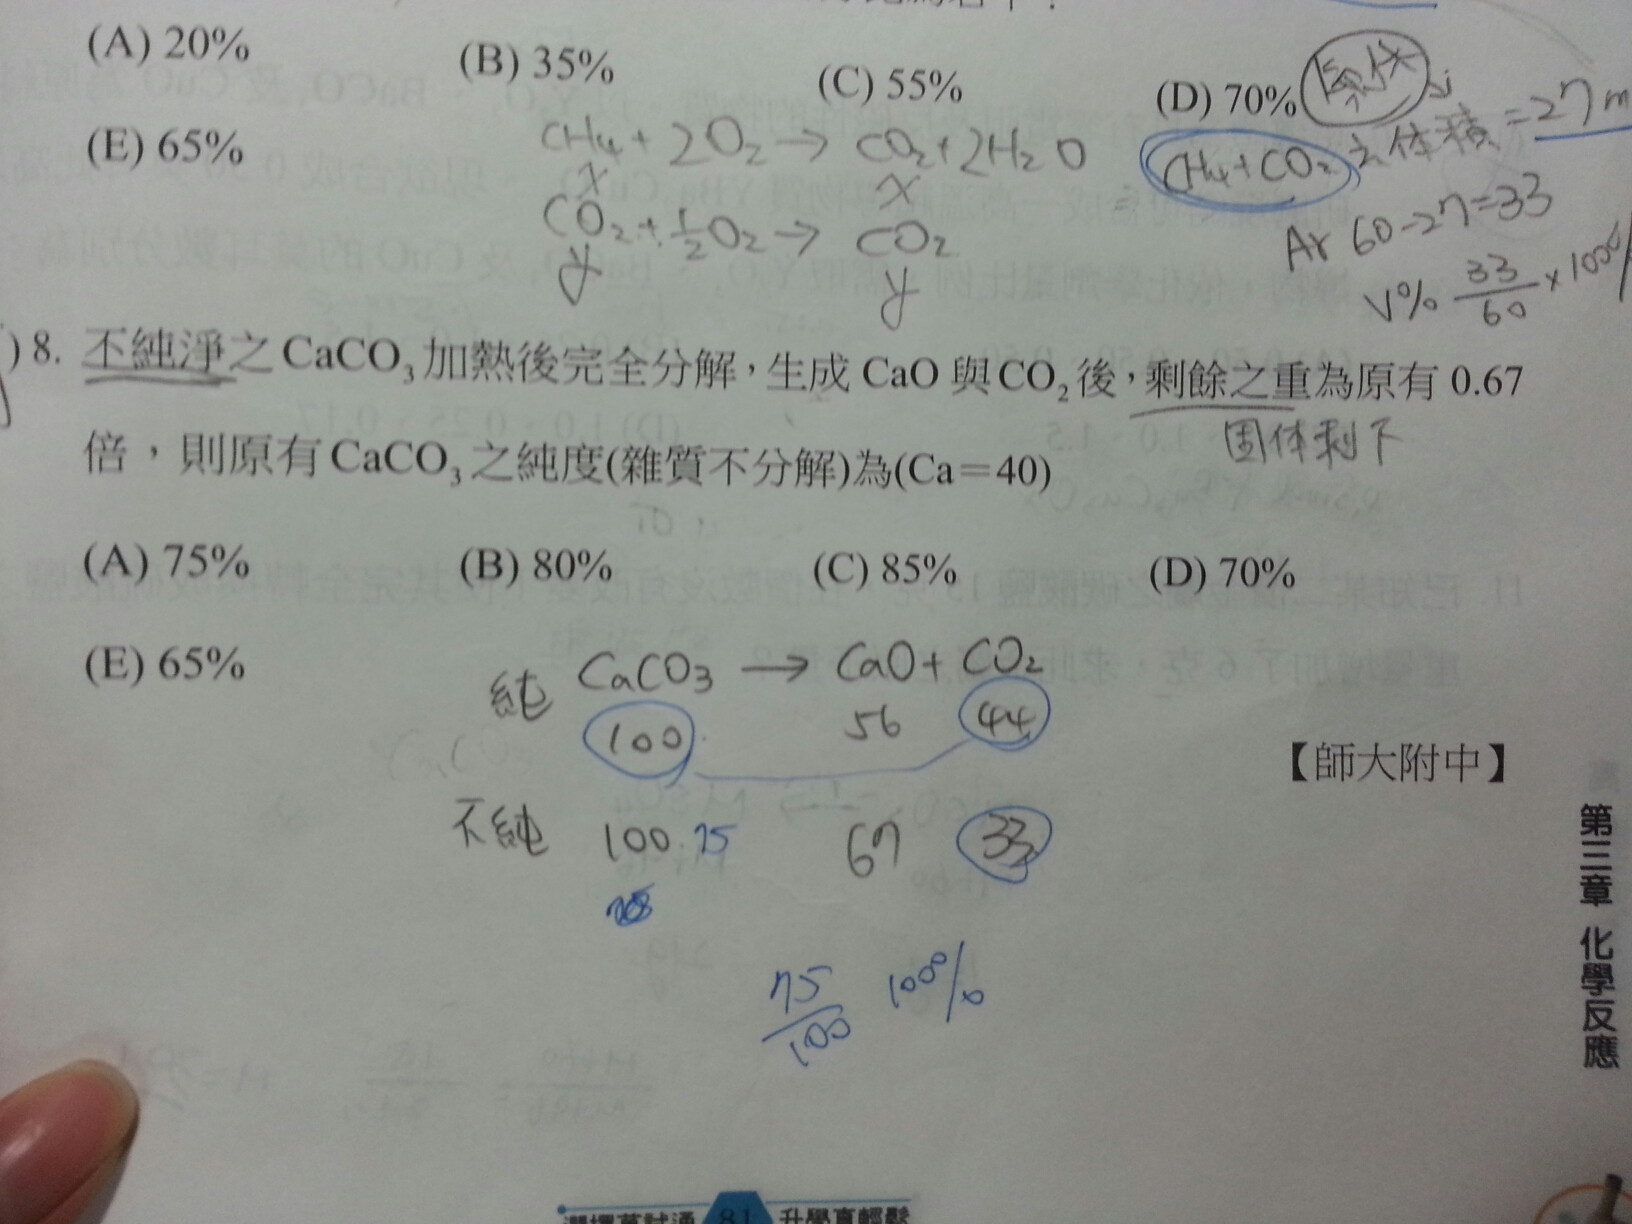 (A) 20%
(B) 35%
(C) 55%
(D) 70%
(E) 65%
CH4 + 2O2 → CO2 + 2H2O
x x
CO2 + 1/2 O2 → CO2
y y
CH4+CO2 之体積 = 27 m
Ar 60-27=33
V% 33/60 × 100%
8. 不純淨之 CaCO₃ 加熱後完全分解,生成 CaO 與 CO₂ 後,剩餘之重為原有 0.67
固体剩下
倍,則原有 CaCO₃ 之純度(雜質不分解)為(Ca=40)
(A) 75%
(B) 80%
(C) 85%
(D) 70%
(E) 65%
純 CaCO3 → CaO + CO2
100 56 44
【師大附中】
不純 100 75 67 33
75/100 100%
第三章 化學反應
81